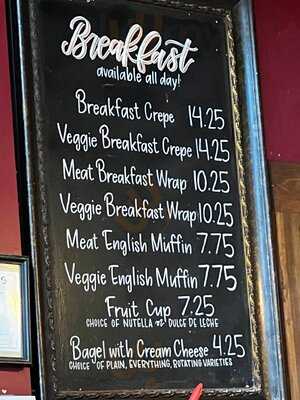 Breakfast
available all day!
Breakfast Crepe 14.25
Veggie Breakfast Crepe 14.25
Meat Breakfast Wrap 10.25
Veggie Breakfast Wrap 10.25
Meat English Muffin 7.75
Veggie English Muffin 7.75
Fruit Cup 7.25
CHOICE OF NUTELLA or DULCE DE LECHE
Bagel with Cream Cheese 4.25
CHOICE OF PLAIN, EVERYTHING, ROTATING VARIETIES